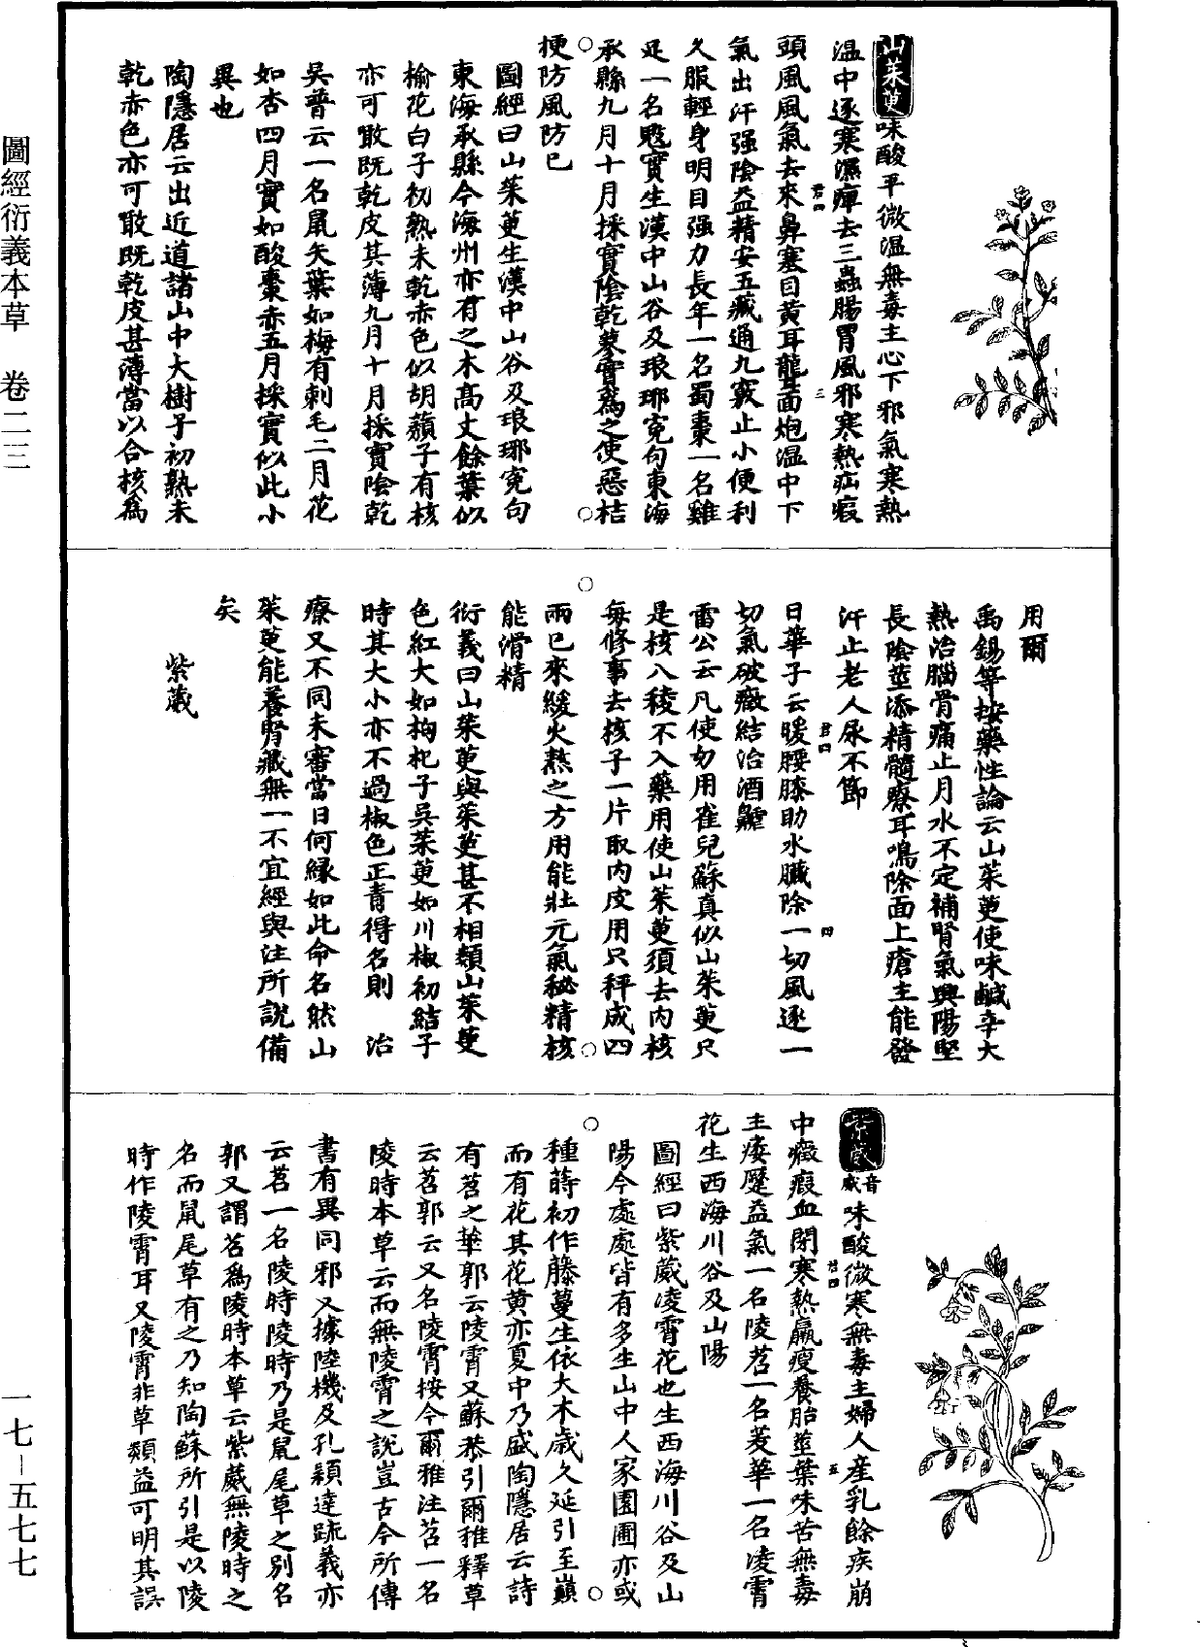 圖經衍義本草　卷二三
一七—五七七
山茱萸味酸平微溫無毒主心下邪氣寒熱
溫中逐寒濕痺去三蟲腸胃風邪寒熱疝瘕
頭風風氣去來鼻塞目黃耳聾面皰溫中下
氣出汗强陰益精安五藏通九竅止小便利
久服輕身明目强力長年一名蜀棗一名雞
足一名鬾實生漢中山谷及琅琊寃句東海
承縣九月十月採實陰乾蓼實爲之使惡桔
梗防風防已
圖經曰山茱萸生漢中山谷及琅琊寃句
東海承縣今海州亦有之木高丈餘葉似
榆花白子初熟未乾赤色似胡蘈子有核
亦可噉旣乾皮其薄九月十月採實陰乾
吳普云一名鼠矢葉如梅有刺毛二月花
如杏四月實如酸棗赤五月採實似此小
異也
陶隱居云出近道諸山中大樹子初熟未
乾赤色亦可噉旣乾皮甚薄當以合核爲
用爾
禹錫等按藥性論云山茱萸使味鹹辛大
熱治腦骨痛止月水不定補腎氣興陽堅
長陰莖添精髓療耳鳴除面上瘡主能發
汗止老人尿不節
日華子云暖腰膝助水臟除一切風逐一
切氣破癥結治酒齄
雷公云凡使勿用雀兒蘇真似山茱萸只
是核八稜不入藥用使山茱萸須去內核
每修事去核子一片取內皮用只秤成四
兩已來緩火熬之方用能壯元氣秘精核
能滑精
衍義曰山茱萸與茱萸甚不相類山茱萸
色紅大如枸杞子吳茱萸如川椒初結子
時其大小亦不過椒色正青得名則　治
療又不同未審當日何緣如此命名然山
茱萸能養腎藏無一不宜經與注所說備
矣
紫葳
紫葳音威味酸微寒無毒主婦人產乳餘疾崩
中癥瘕血閉寒熱羸瘦養胎莖葉味苦無毒
主痿蹷益氣一名陵苕一名茇華一名凌霄
花生西海川谷及山陽
圖經曰紫葳凌霄花也生西海川谷及山
陽今處處皆有多生山中人家園圃亦或
種蒔初作藤蔓生依大木歲久延引至巔
而有花其花黃赤夏中乃盛陶隱居云詩
有苕之華郭云陵霄又蘇恭引爾雅釋草
云苕郭云又名陵霄按今爾雅注苕一名
陵時本草云而無陵霄之說豈古今所傳
書有異同邪又據陸機及孔穎達疏義亦
云苕一名陵時陵時乃是鼠尾草之別名
郭又謂苕爲陵時本草云紫葳無陵時之
名而鼠尾草有之乃知陶蘇所引是以陵
時作陵霄耳又陵霄非草類益可明其誤